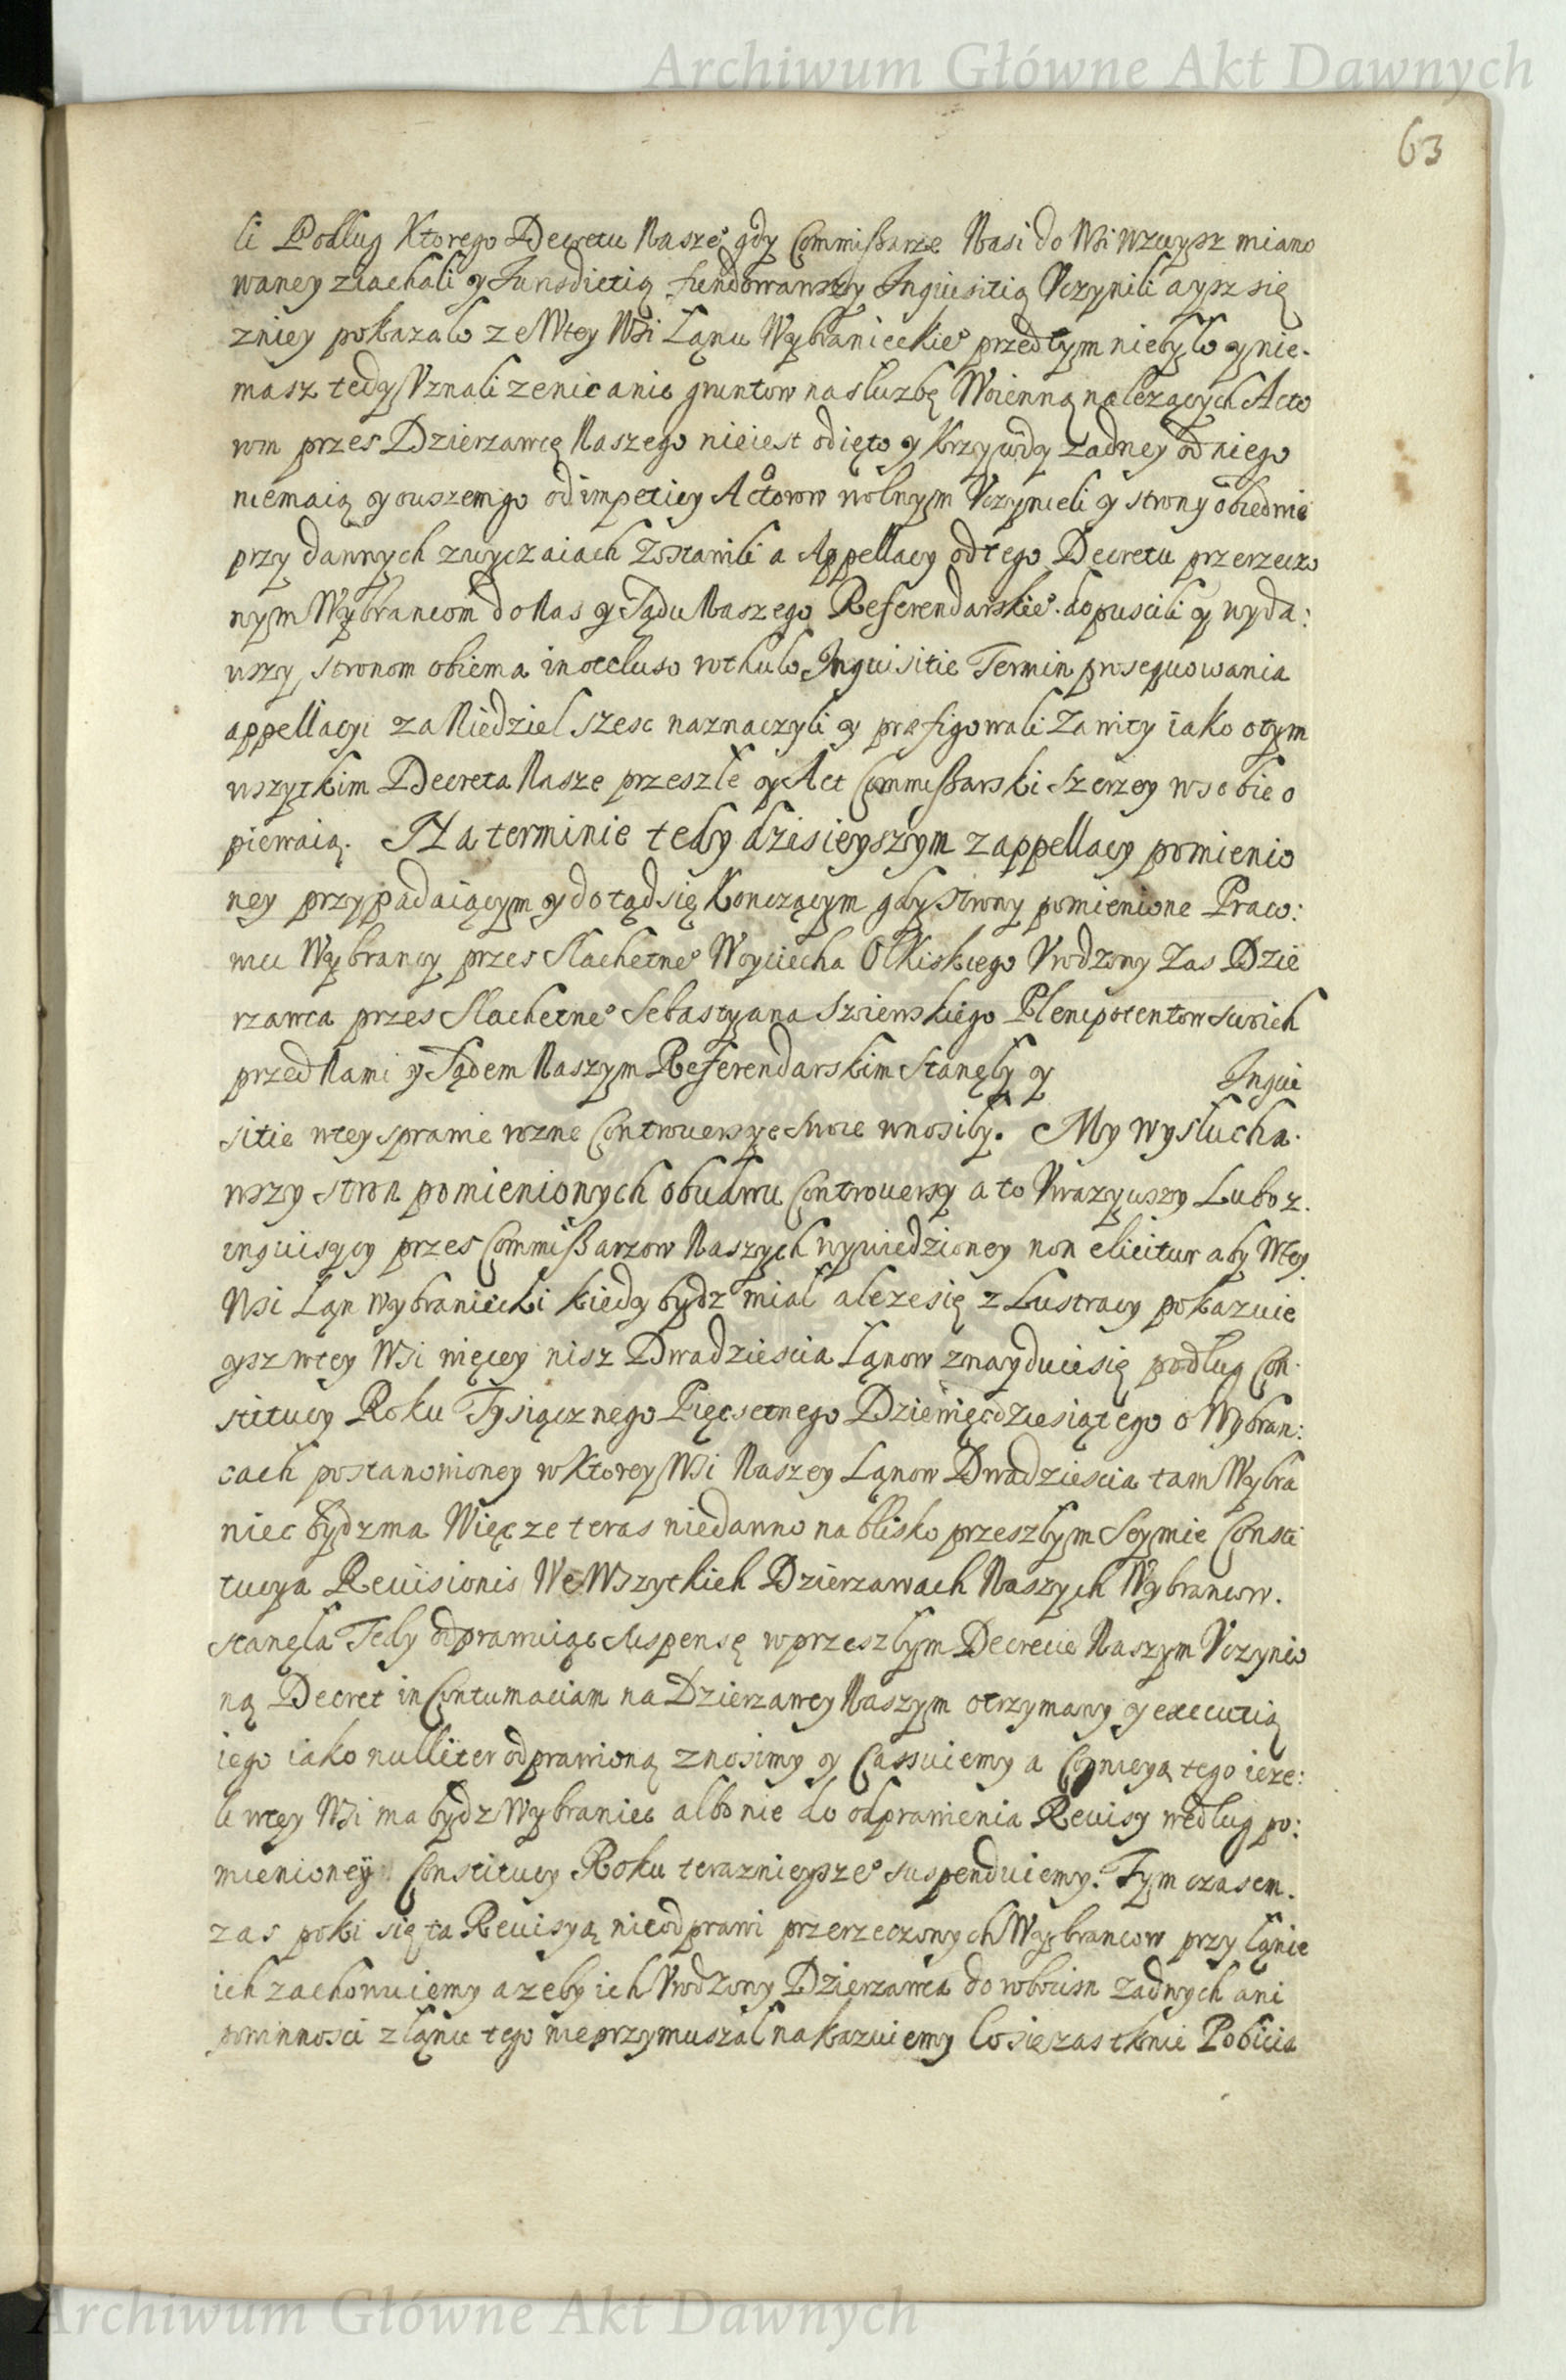 Archiwum Główne Akt Dawnych
63
li Podług Ktorego Decretu Nasze° gdy Commißarze Nasi do Wsi wzwysz miano
waney ziachali y Jurisdictią fundowawszy Inquisitią Vczynili a ysz się
zniey pokazało ze Wtey Wsi Łąnu Wybranieckie° przedtym niebyło y nie-
masz tedy Vznali ze nic a nic gruntow na słuzbę Woienną nalezących Acto
rom przes Dzierzawcę Naszego nieiest odięto y Krzywdy zadney od niego
niemaią y owszem go od impeticy Actorow wolnym Vczynieli y strony obiedwie
przy dawnych zwyczaiach zostawili a Appellacy od tego Decretu przerzeczo
nym Wybrancom do Nas y Sądu Naszego Referendarskie°. dopuscili y wyda:
wszy stronom obiema in occluso rothulo Inquisitie Termin prosequowania
appellacyi za Niedziel szesc naznaczyli y prefigowali zawity iako otym
wszytkim Decreta Nasze przeszłe y Act Commißarski szerzey w sobie o
piewaią. Na terminie tedy dzisieyszym z appellacy pomienio
ney przypadaiącym y dotąd się Konczącym gdy strony pomienione Praco:
wici Wybrancy przes Slachetne° Woyciecha Olkiskiego Vrodzony zas Dzie
rzawca przes Slachetne° Sebastyana Plenipotentow swoich
przed Nami y Sądem Naszym Referendarskim stanęły y Inqui
sitie wtey sprawie rozne Controuersye swoie wnosiły. My wysłucha-
wszy stron pomienionych obudwu Controuersy a to Vwazywszy Lubo z.
inquisycy przes Commißarzow Naszych wywiedzioney non elicitur aby Wtey
Wsi Łąn Wybraniecki kiedy bydz miał ale ze się z Lustracy pokazuie
ysz wtey Wsi więcey nisz Dwadziescia Łąnow znayduie się podług Con-
stitucy Roku Tysiącznego Pięcsetnego Dziewięcdziesiątego o Wybran:
cach postanowioney w Ktorey Wsi Naszey Łąnow Dwadziescia tam Wybra
niec bydz ma Więc ze teras niedawno na blisko przeszłym Seymie Consti
tucya Reuisionis We Wszytkich Dzierzawach Naszych Wybrancow.
stanęła Tedy odprawuiąc suspensę w przeszłym Decrecie Naszym Vczynio
ną Decret in Contumaciam na Dzierzawcy Naszym otrzymany y executią
iego iako nulliter odprawioną znosimy y Cassuiemy a tego ieze:
li wtey Wsi ma bydz Wybraniec albo nie do odprawienia Reuisy według po:
mienioney Constitucy Roku teraznieysze° suspenduiemy. Tym czasem.
zas poki się ta Reuisyą nieodprawi przerzeczonych Wybrancow przy łąnie
ich zachowuiemy a zeby ich Vrodzony Dzierzawca do robocisn zadnych ani
powinnosci z łąnu tego nieprzymuszał nakazuiemy Co się zas tknie Pobicia
Archiwum Główne Akt Dawnych